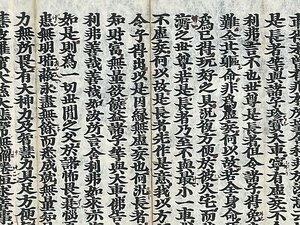 是長者等與諸子珍寶大車寧有虛妄不
利弗言不也世尊是長者但令諸子得免
難全其軀命非為虛妄何以故若全身命
為已得玩好之具況復方便於彼火宅而
濟之世尊若是長者乃至不與最小一車
不虛妄何以故是長者先作是意我以方
令子得出以是因緣無虛妄也何況長
知財富無量欲饒益諸子等與大車佛告
利弗善哉善哉如汝所言舍利弗如來亦
如是則為一切世間之父於諸怖畏衰惱
患無明闇蔽永盡無餘而悉成就無量知
力無所畏有大神力及智慧力具足方便
慧波羅蜜大慈大悲常無懈惓恒求善事